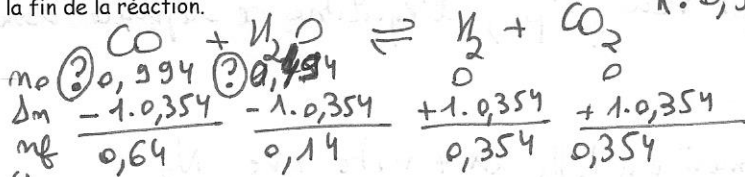 la fin de la réaction.
CO + H2O ⇌ H2 + CO2
n0 ? 0,994 ? 0,494 0 0
Δn - 1.0,354 - 1.0,354 + 1.0,354 + 1.0,354
nf 0,64 0,14 0,354 0,354